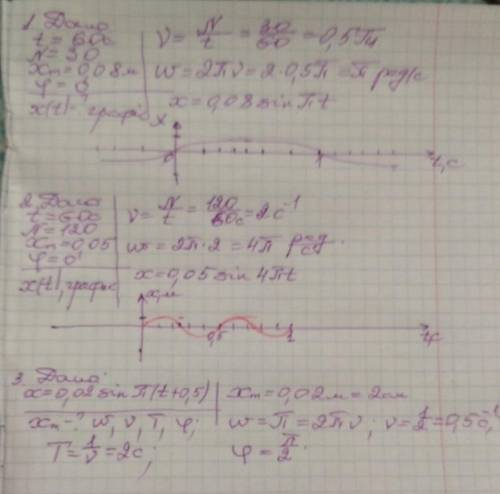 1. Дано
t = 60c
N = 30
xm = 0,08 м
φ = 0
x(t) - график
ν = N/t = 30/60 = 0,5 Гц
w = 2πν = 2·0,5π = π рад/с
x = 0,08 sin πt
x
0
1
t, c
2. Дано
t = 60c
N = 120
xm = 0,05
φ = 0
x(t), график
ν = N/t = 120/60c = 2 c⁻¹
w = 2π·2 = 4π рад/с.
x = 0,05 sin 4πt
x, м
0,5
1
t, c
3. Дано
x = 0,02 sin π(t+0,5)
xm - ? w, ν, T, φ;
T = 1/ν = 2c;
xm = 0,02 м = 2 см
w = π = 2πν; ν = 1/2 = 0,5 c⁻¹;
φ = π/2.